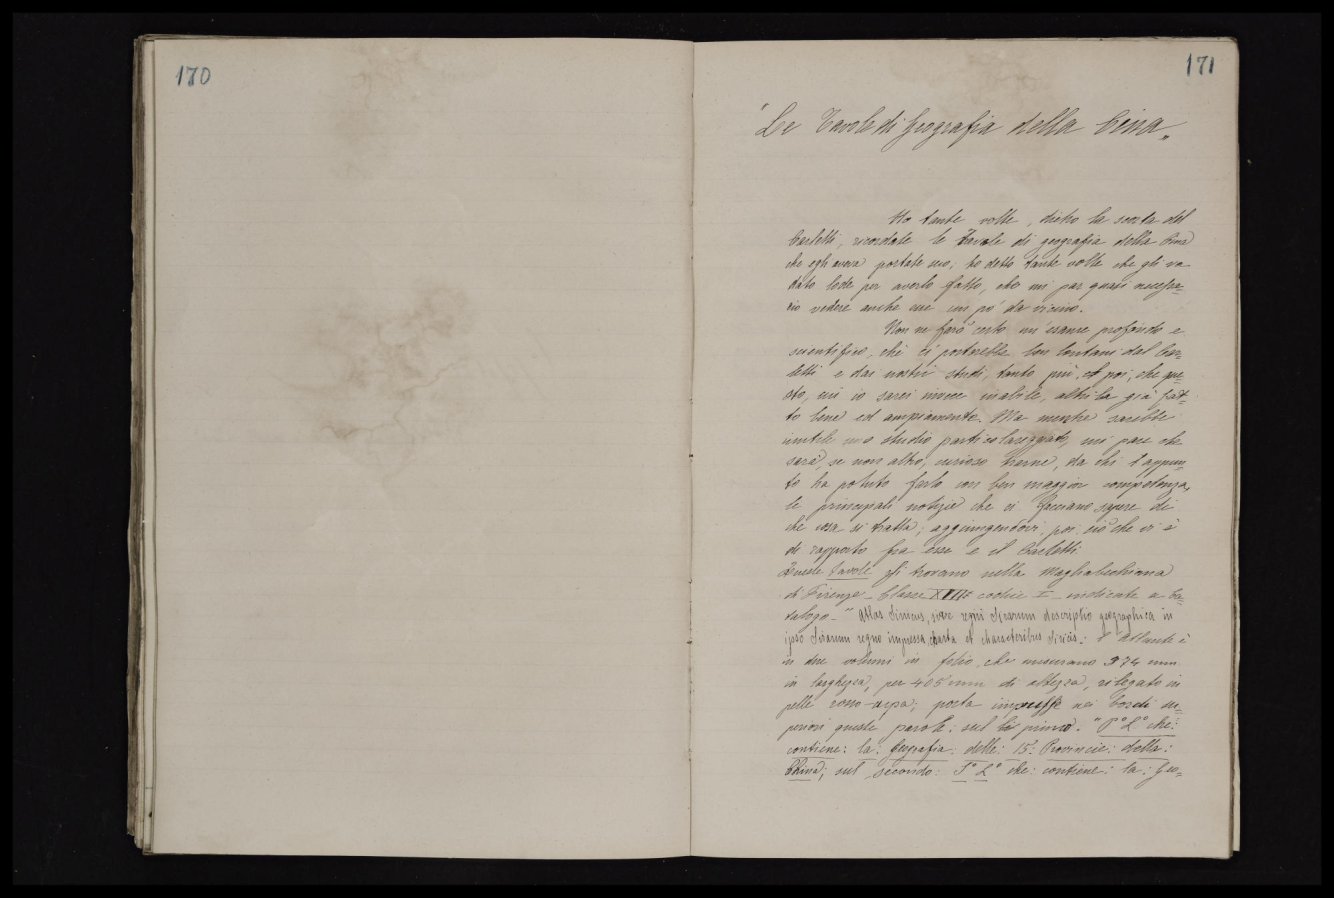 170
171
"Le Tavole di Geografia della Cina„
Ho tante volte, dietro la scorta del
Carletti, ricordate le Tavole di geografia della Cina
che egli aveva portate seco; ho detto tante volte che gli va
dato lode per averlo fatto, che mi par quasi necessa-
rio vedere anche un po' da vicino.
Non ne farò certo un esame profondo e
scientifico, chè ci porterebbe ben lontani dal Car-
letti e dai nostri studi, tanto più, poi, che que-
sto, cui io sarei invece inabile, altri ha già fat-
to bene ed ampiamente. Ma mentre sarebbe
inutile uno studio particolareggiato, mi pare che
sarà, se non altro, curioso trarne, da chi appun-
to ha potuto farlo con ben maggior competenza,
le principali notizie che ci facciano sapere di
che cosa si tratta; aggiungendovi poi ciò che vi è
di rapporto fra esse e il Carletti.
Queste Tavole si trovano nella Magliabechiana
di Firenze - Classe XIII codice I - indicate a Ca-
talogo - "Atlas Sinicus, sive regni Sinarum descriptio geographica in
ipso Sinarum regno impressa charta et characteribus Sinicis. L'atlante è
in due volumi in folio, che misurano 374 mm
in larghezza, per 405 mm di altezza, rilegato in
pelle; porta impresse nei bordi su-
periori queste parole: sul primo. "P.° L.° che:
contiene: la: Geografia: delle: 15: Provincie: della:
China; sul secondo: S° L° che: contiene: la: Geo-